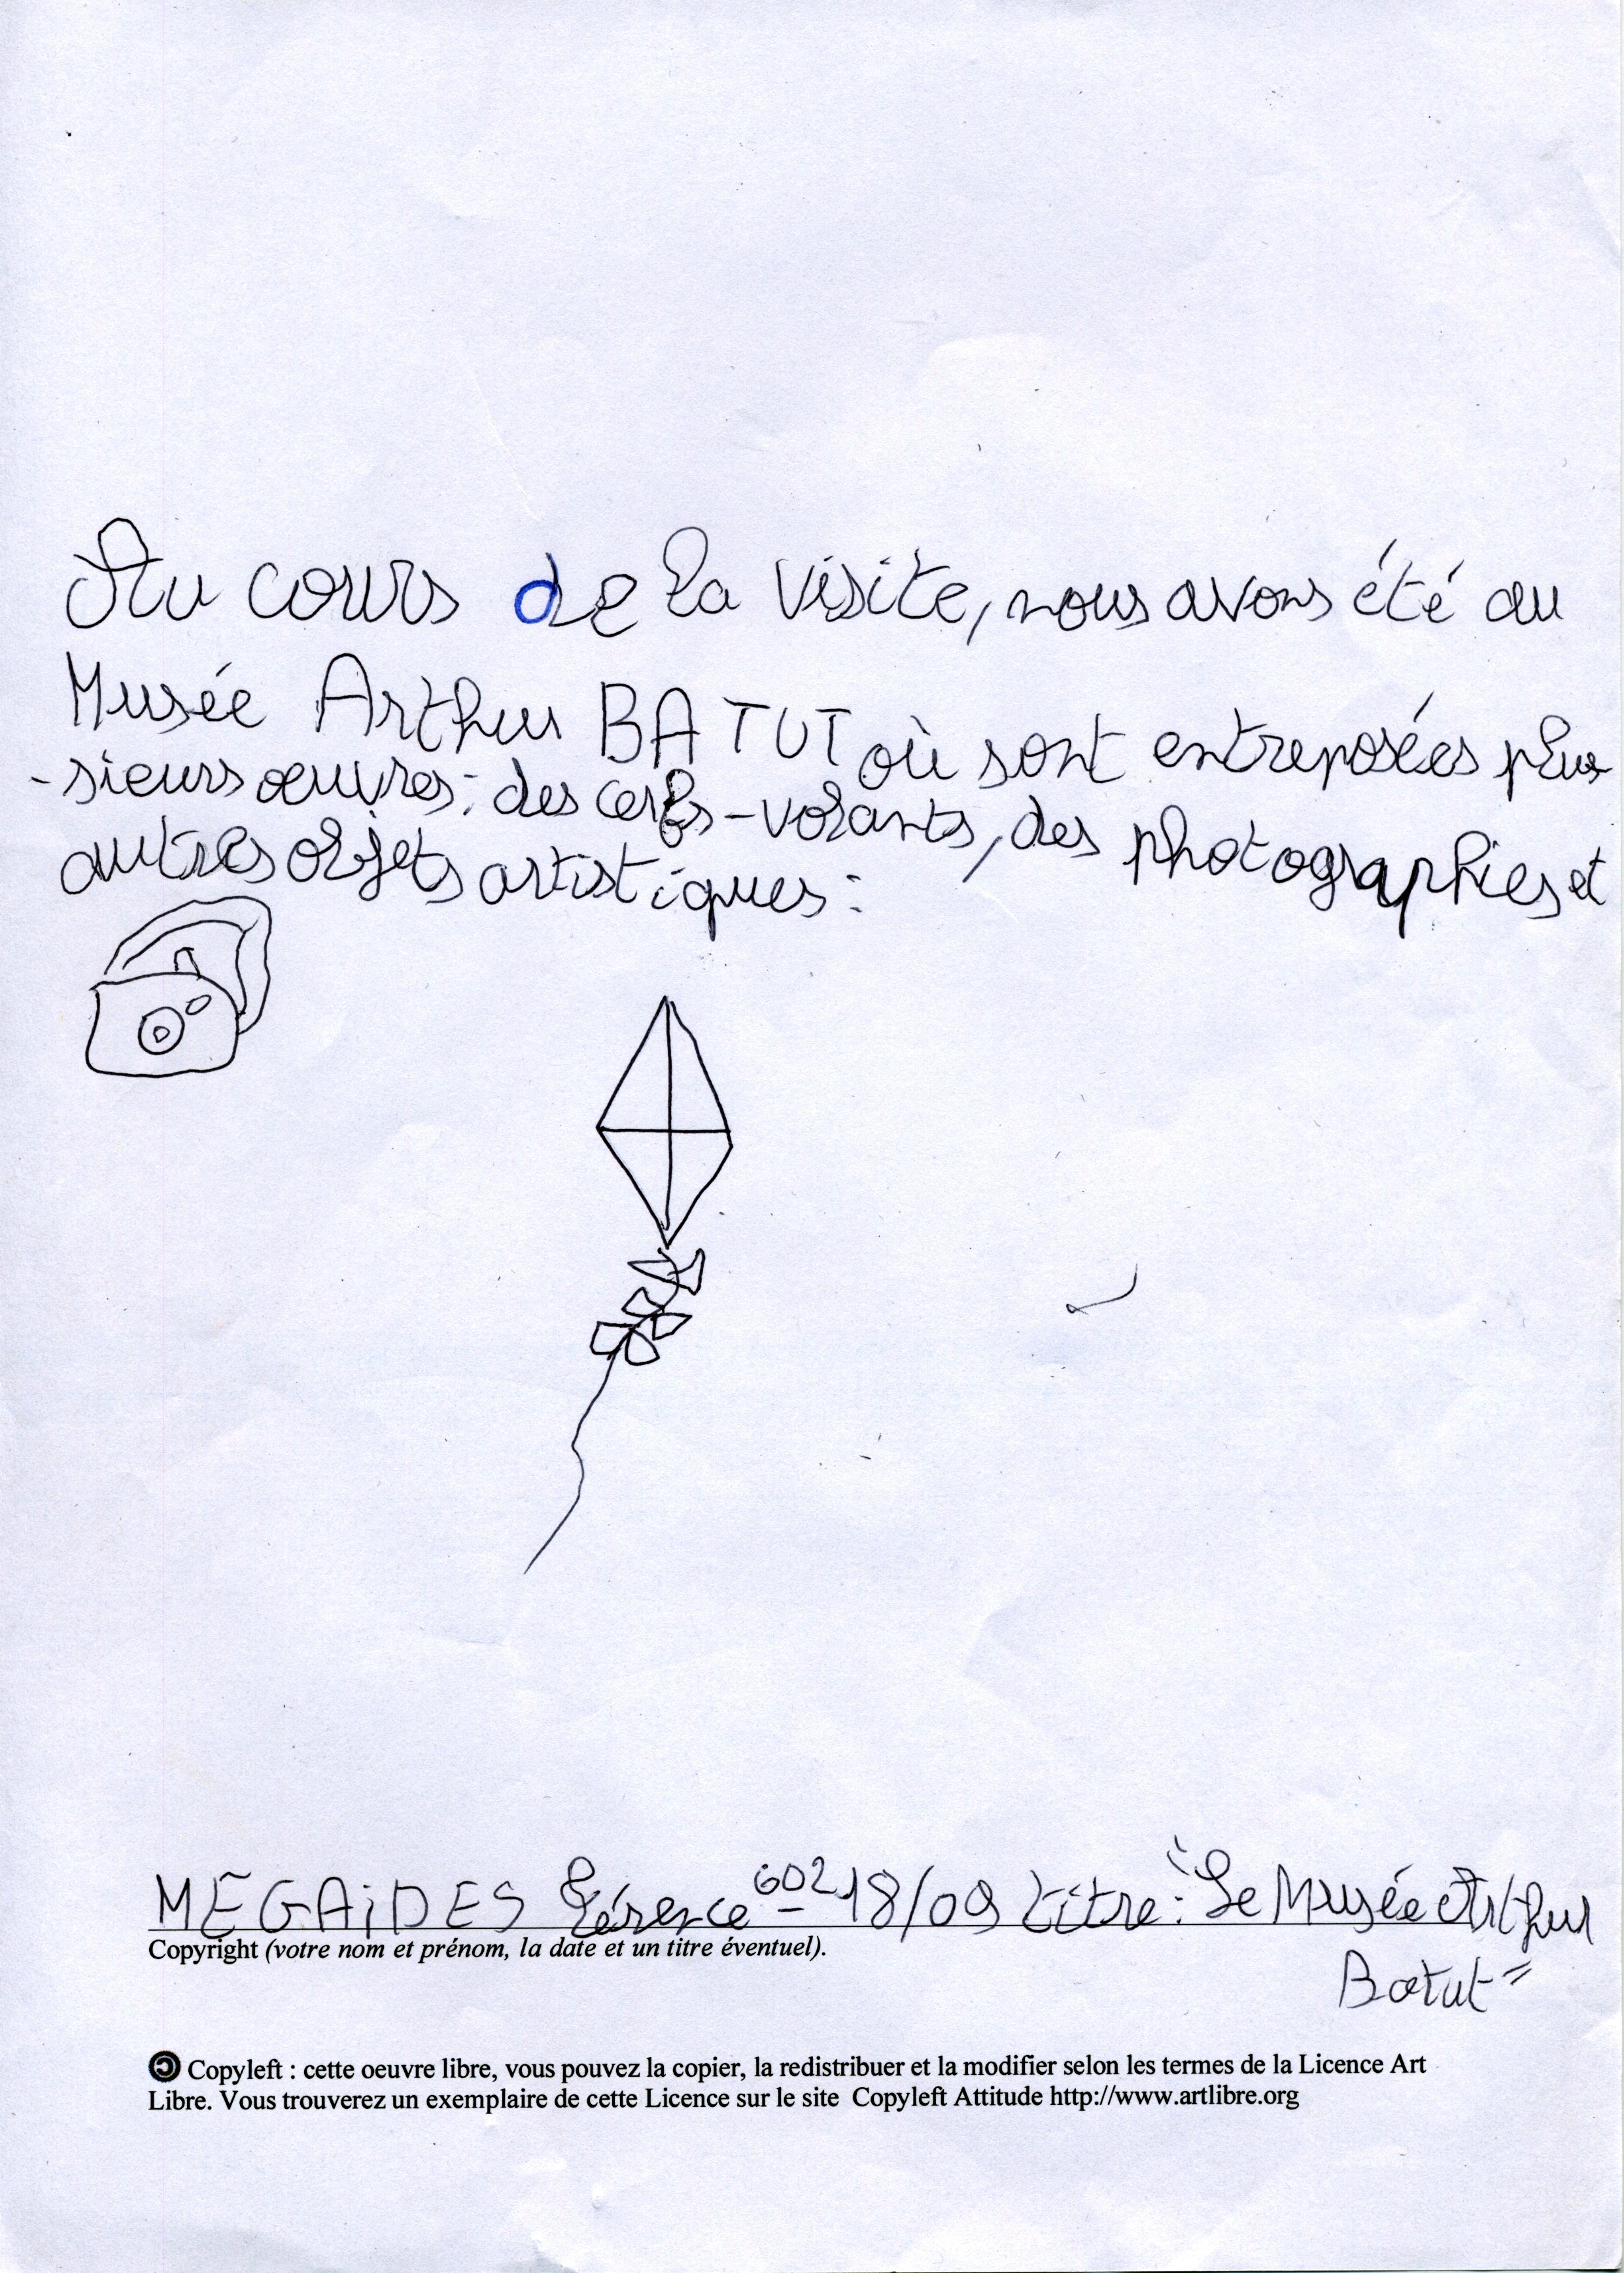 Au cours de la visite, nous avons été au
Musée Arthur BATUT où sont entreposées plu
-sieurs œuvres : des cerfs-volants, des photographies et
autres objets artistiques :
MEGAiDES 602 - 18/09 titre : "Le Musée Arthur
Batut"
Copyright (votre nom et prénom, la date et un titre éventuel).
Copyleft : cette oeuvre libre, vous pouvez la copier, la redistribuer et la modifier selon les termes de la Licence Art
Libre. Vous trouverez un exemplaire de cette Licence sur le site Copyleft Attitude http://www.artlibre.org